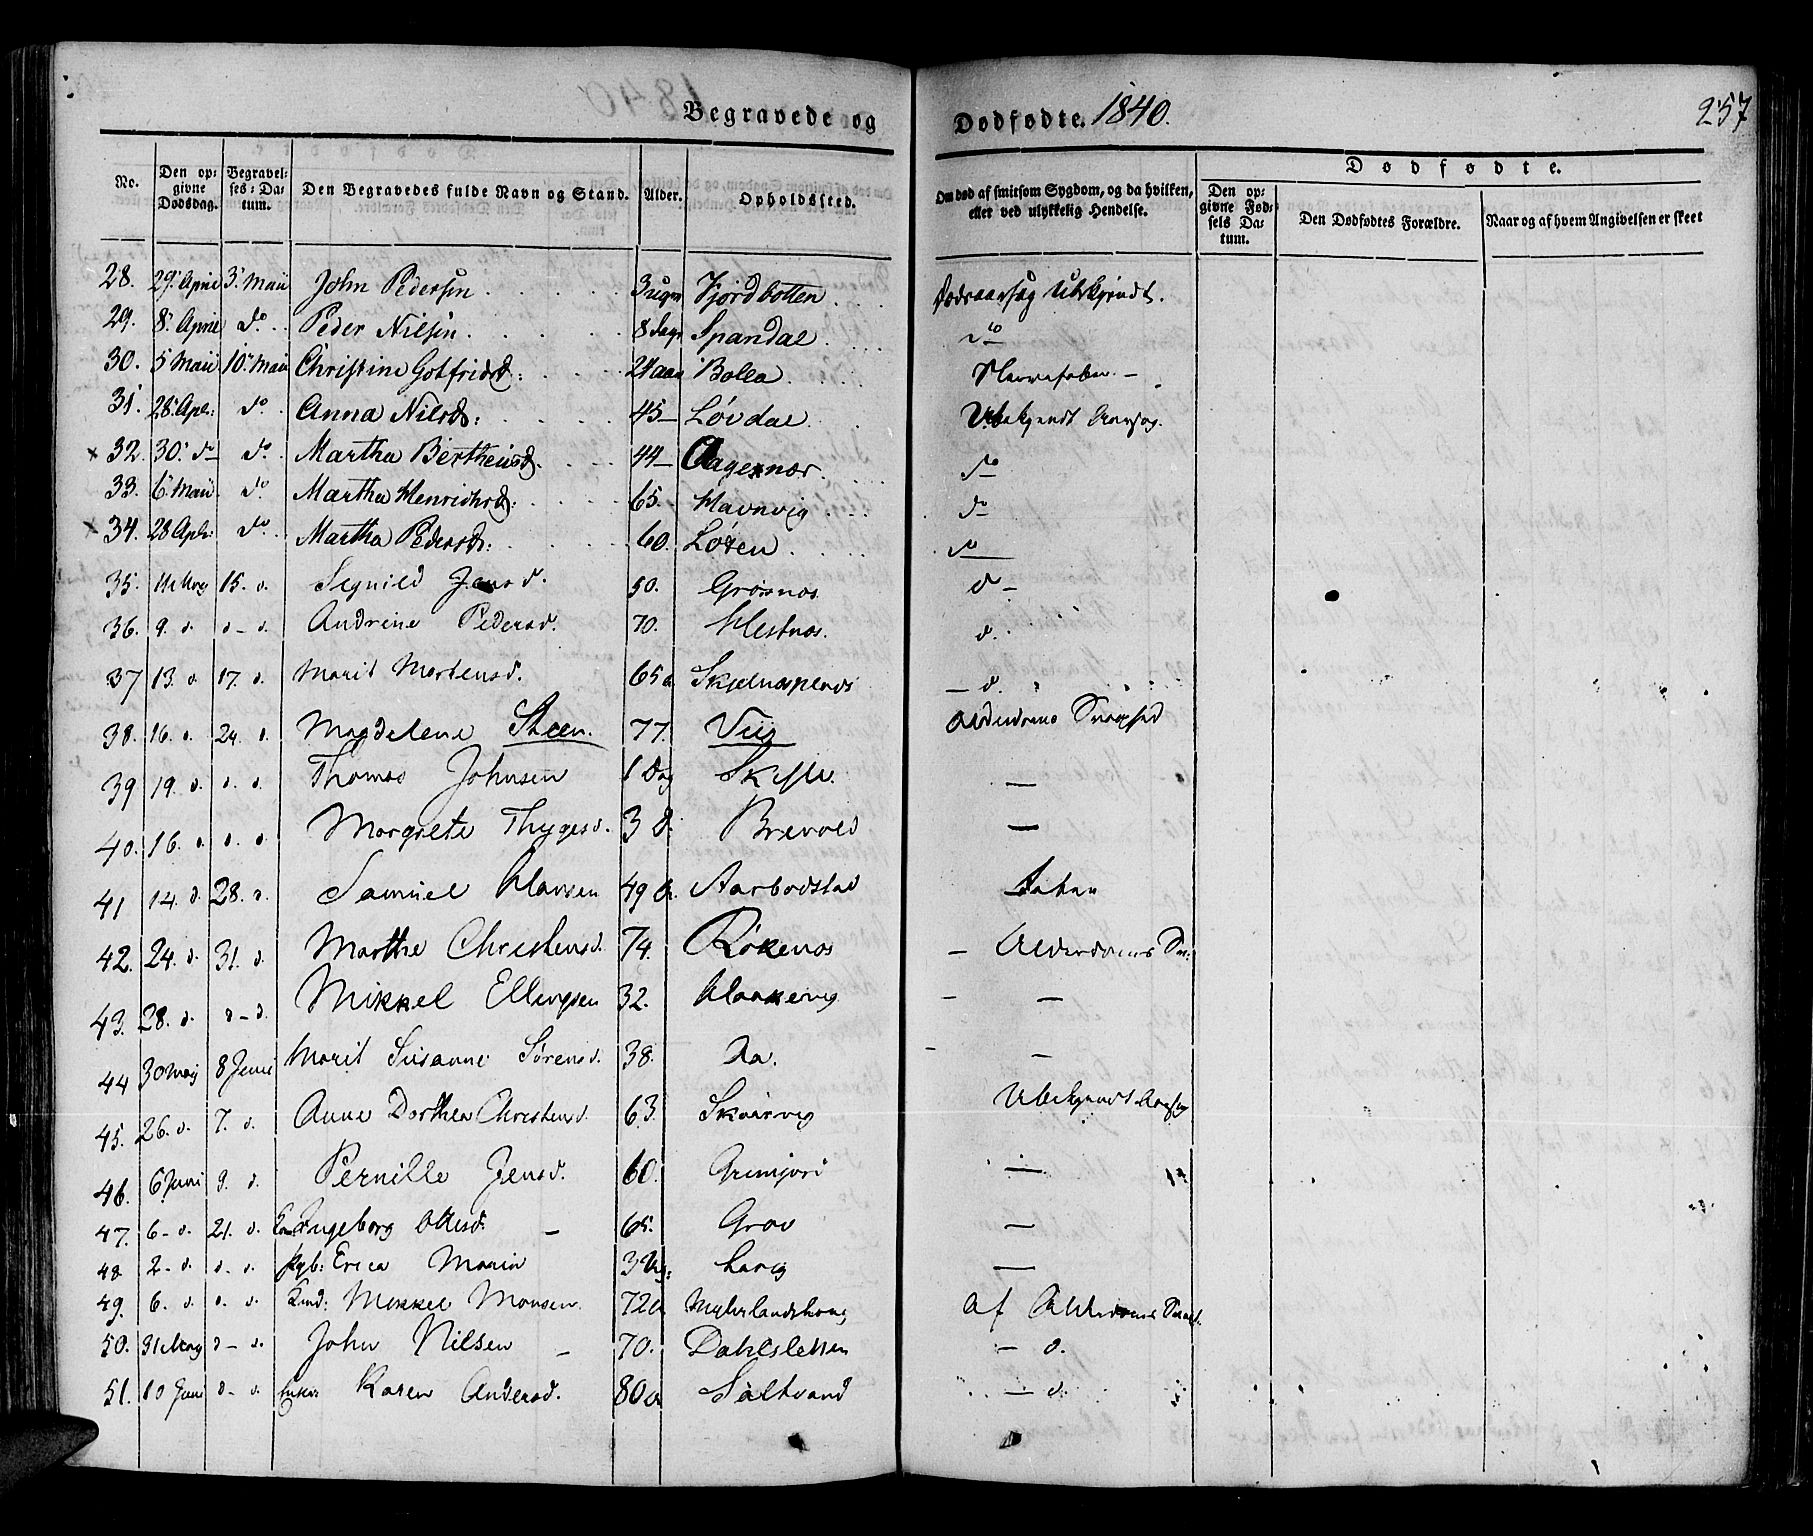 Begravede og Dødfødte. 1840. 257
No. Den opgivne Dødsdag. Begravelses-Datum. Den Begravedes fulde Navn og Stand. Alder. Opholdssted. Om død af smitsom Sygdom, og da hvilken, eller ved ulykkelig Hendelse. Dødfødte.
Den opgivne Fødsels Datum. Den Dødfødtes Forældre. Naar og af hvem Angivelsen er skeet
28. 29. April 3. Maii John Pedersen 3 ugr Fjordbotten Ubekjendt.
29. 8. April do. Peder Nilsen 8 dage Spandal do
30. 5 Maii 10. Maii Christine Gotfridsd: 24 aar Bolla
31. 28. Apl: do. Anna Nilsd: 45 Løvdal Ubekjendt Aarsag.
x 32. 30. do do. Martha Bertheusd. 44 Aagernær do
33. 6. Maii do. Martha Henrichsd: 65. Havnvig do
x 34. 28 Apl: do Martha Pedersd: 60. Løsen do
35. 11 May 15. d. Signild Jensd. 50. Grøsnæs d
36. 9. d. d. d. Andrine Pedersd. 70. Hestnæs d.
37 13. d 17. d. Marit Mortensd. 65 a d.
38. 16. d. 24. d. Magdelene Steen. 77. Viig Alderdoms
39 19. d. d. d. Thomas Johnsen 1 Dag —
40. 16. d. d. d. Margrete Thygesd. 3 d. Brevold —
41 14. d. 28. d. Samuel Hansen 49 A. Aarbodstad
42. 24. d. 31. d. Marthe Christensd. 74. Røkenæs Alderdoms
43. 28. d. d-d. Mikkel Ellingsen 32. Haakevig —
44 30 May 8 Juni Marit Susanne Sørensd. 38. Aa. —
45. 26. d. 7. d. Anne Dorthea Christensd. 63. Skaarvig Ubekjendt Aarsag
46. 6 Juni 9. d. Pernille Jensd. 60. —
47. 6 - d. 21. d. Ingeborg 65. Grov —
48. 2 - d. d. d. Erica Maria 3 Ug: Lavig —
49. 6. d. d. d. Mikkel Monsen 72 a af Alderdoms
50. 31 May d - d. John Nilsen 70. Dahlsletten d.
51. 10 Juni d - d. Karen Andersd. 80 a Saltvand d.